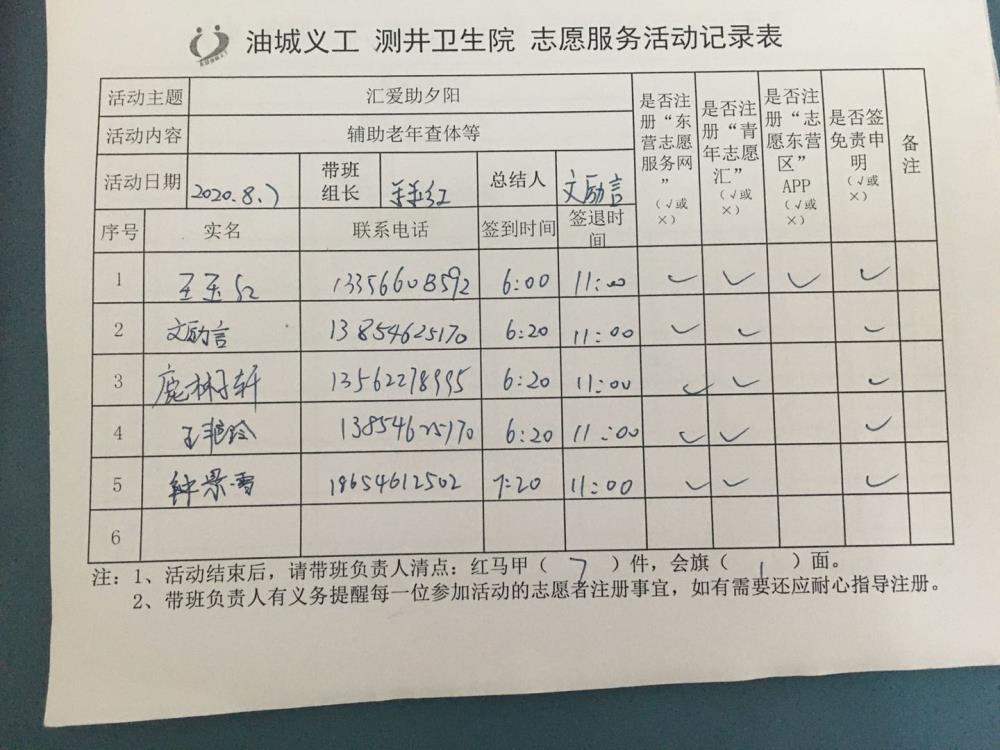 油城义工 测井卫生院 志愿服务活动记录表
活动主题 汇爱助夕阳 是否注册“东营志愿服务网”（√或×） 是否注册“青年志愿汇”（√或×） 是否注册“志愿东营区”APP（√或×） 是否签免责申明（√或×） 备注
活动内容 辅助老年查体等
活动日期 2020.8.7 带班组长 王玉红 总结人 文励言
序号 实名 联系电话 签到时间 签退时间
1 王玉红 13356608592 6:00 11:00 ✓ ✓ ✓ ✓
2 文励言 13854625170 6:20 11:00 ✓ ✓ ✓
3 鹿林轩 13562278995 6:20 11:00 ✓ ✓ ✓
4 王艳玲 13854625170 6:20 11:00 ✓ ✓ ✓
5 钟景雪 18654612502 7:20 11:00 ✓ ✓ ✓
6
注：1、活动结束后，请带班负责人清点：红马甲（ 7 ）件，会旗（ 1 ）面。
2、带班负责人有义务提醒每一位参加活动的志愿者注册事宜，如有需要还应耐心指导注册。